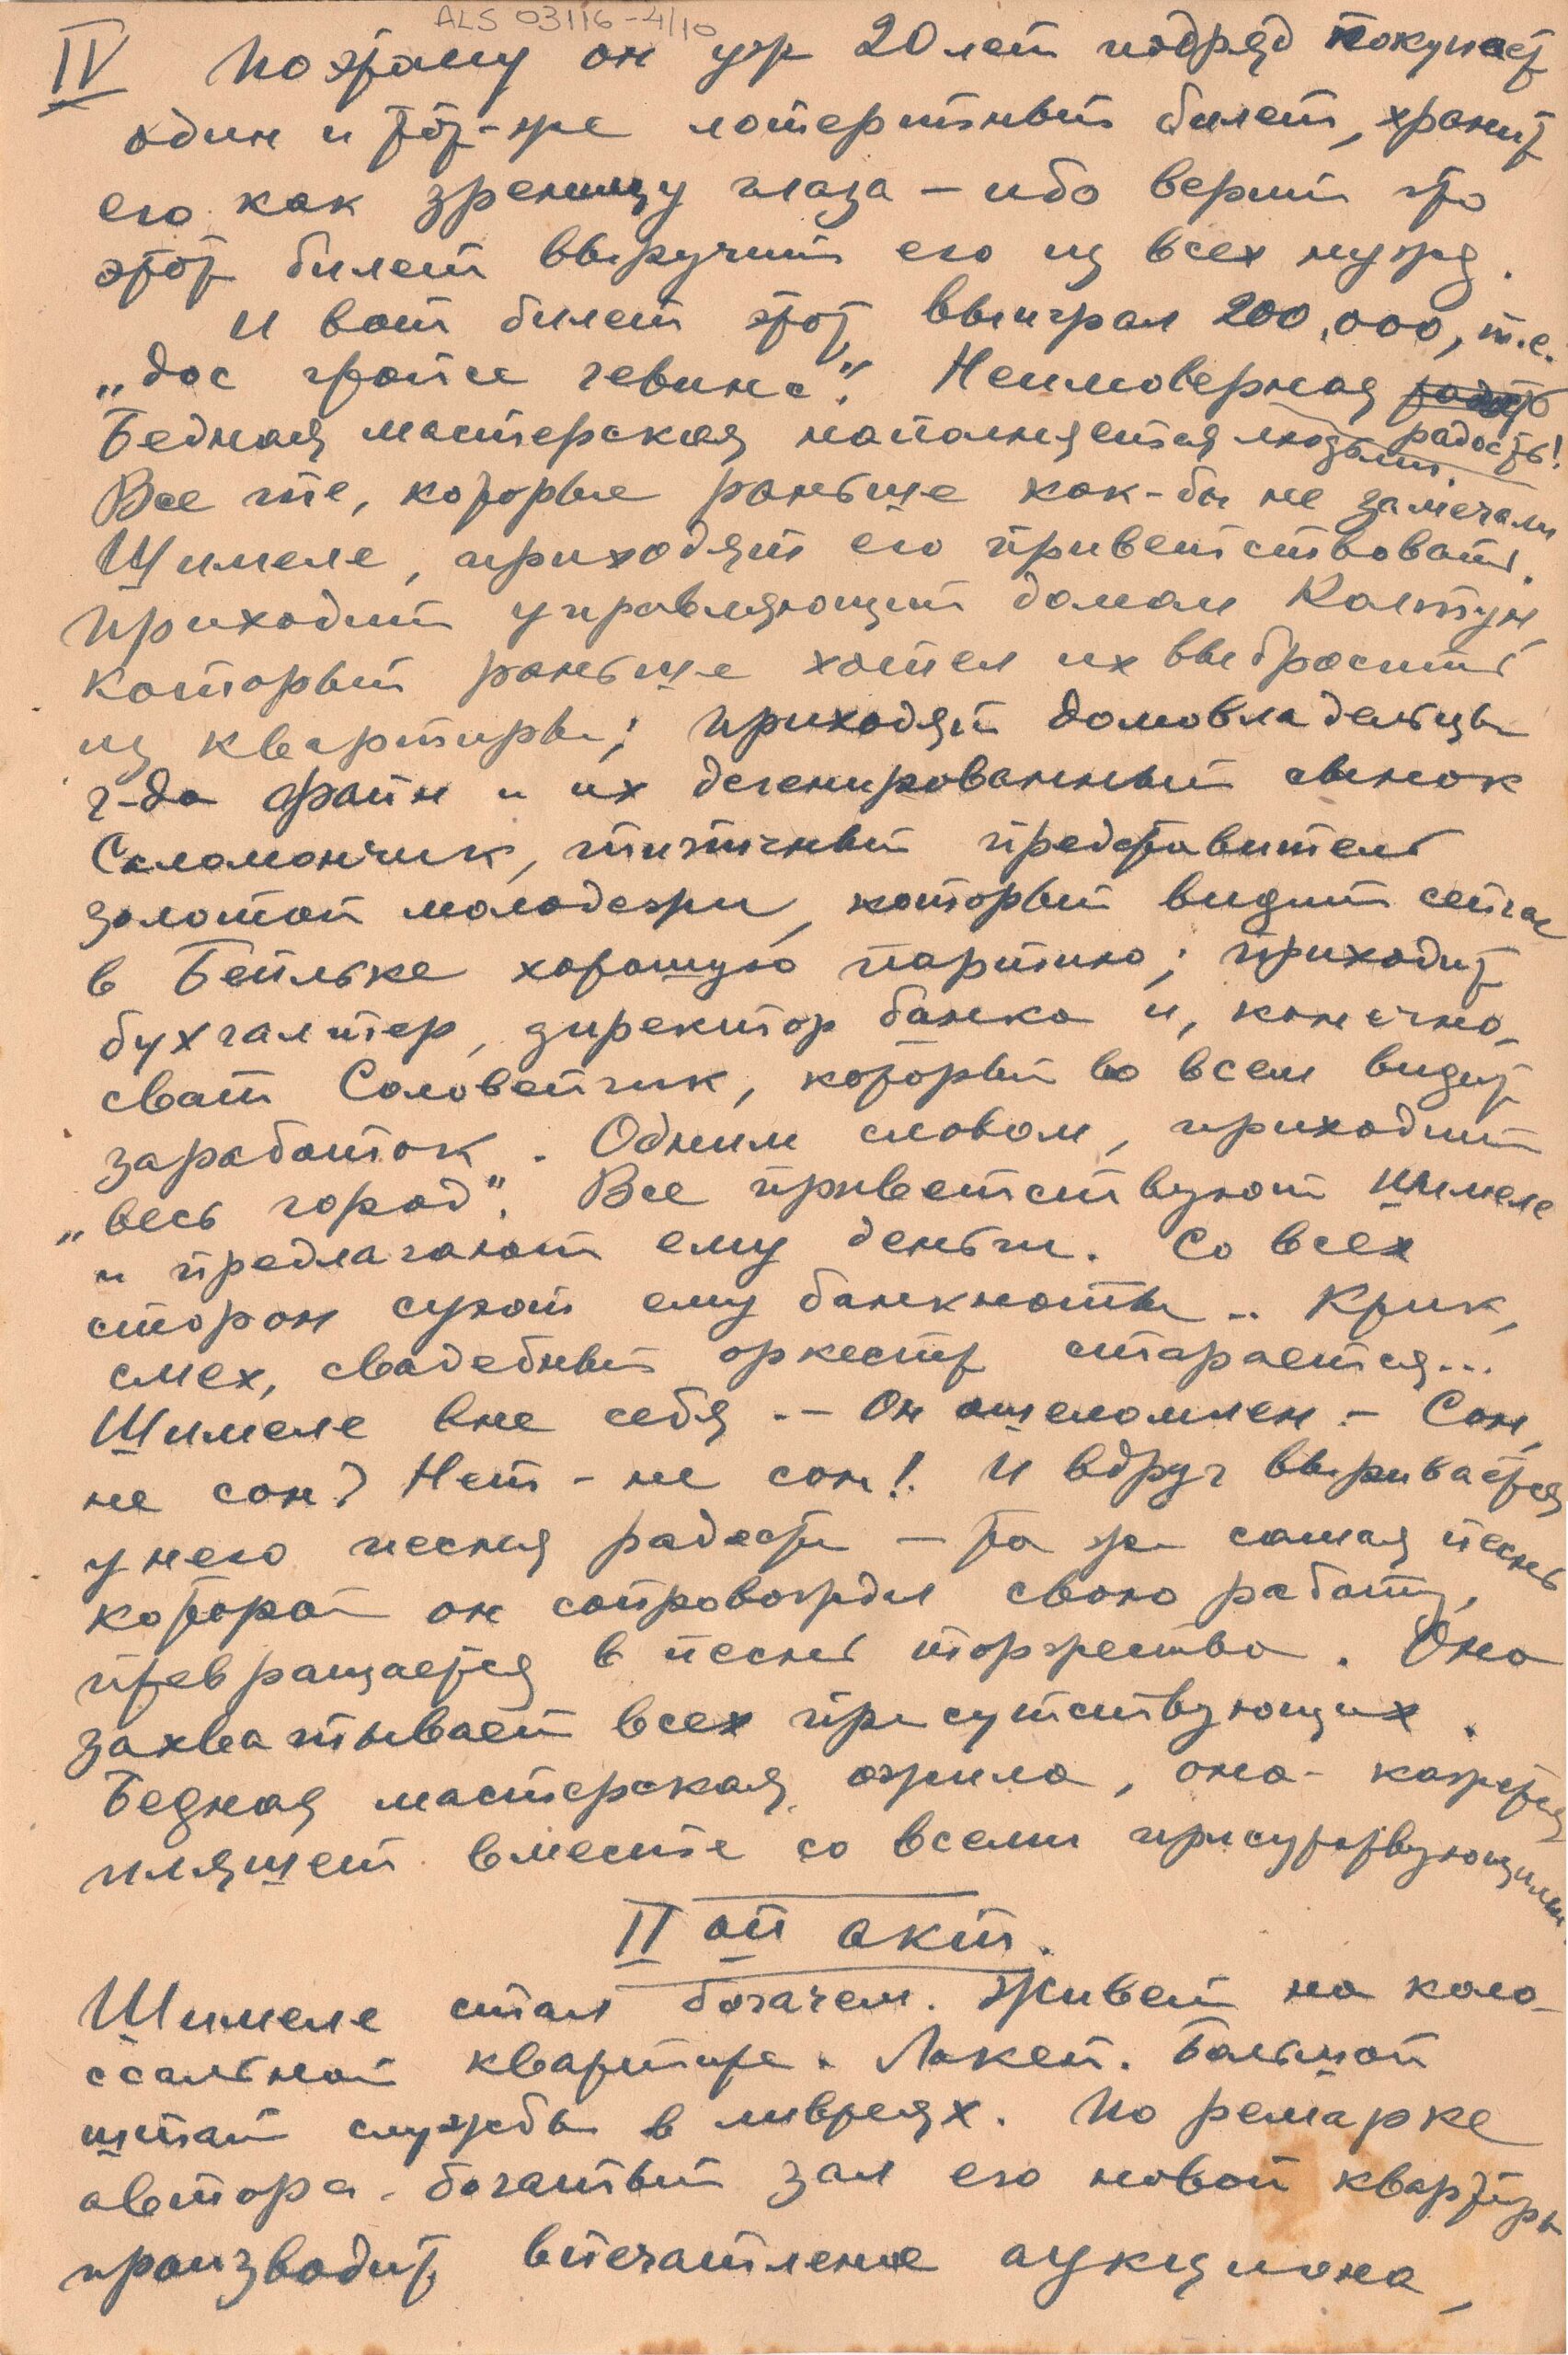 ALS 03116-4/10
IV Поэтому он уж 20 лет подряд покупает
один и тот-же лотерейный билет, хранит
его как зреницу глаза – ибо верит что
этот билет выручит его из всех нужд.
И вот билет этот выиграл 200,000, т.е.
„дос гройсе гевинс". Неимоверная радость
радость!
Бедная мастерская наполняется людьми.
Все те, которые раньше как-бы не замечали
Шимеле, приходят его приветствовать.
Приходит управляющий домом Колтун,
который раньше хотел их выбросить
из квартиры; приходят домовладельцы
г-да Файн и их дегенированный сынок
Соломончик, типичный представитель
золотой молодежи, который видит сейчас
в Бейльке хорошую партию; приходит
бухгалтер, директор банка и, конечно,
сват Соловейчик, который во всем видит
заработок. Одним словом, приходит
„весь город". Все приветствуют Шимеле
и предлагают ему деньги. Со всех
сторон суют ему банкноты.. Крик,
смех, свадебный оркестр старается...
Шимеле вне себя.– Он ошеломлен – Сон,
не сон? Нет – не сон! И вдруг вырывается
у него песня радости – та же самая песнь
которой он сопровождал свою работу,
превращается в песнь торжества. Она
захватывает всех присутствующих.
Бедная мастерская ожила, она - кажется
пляшет вместе со всеми присутствующими.
II ой акт.
Шимеле стал богачем. Живет на коло-
ссальной квартире. Лакей. Большой
штат службы в ливреях. По ремарке
автора - богатый зал его новой квартиры
производит впечатление аукциона,